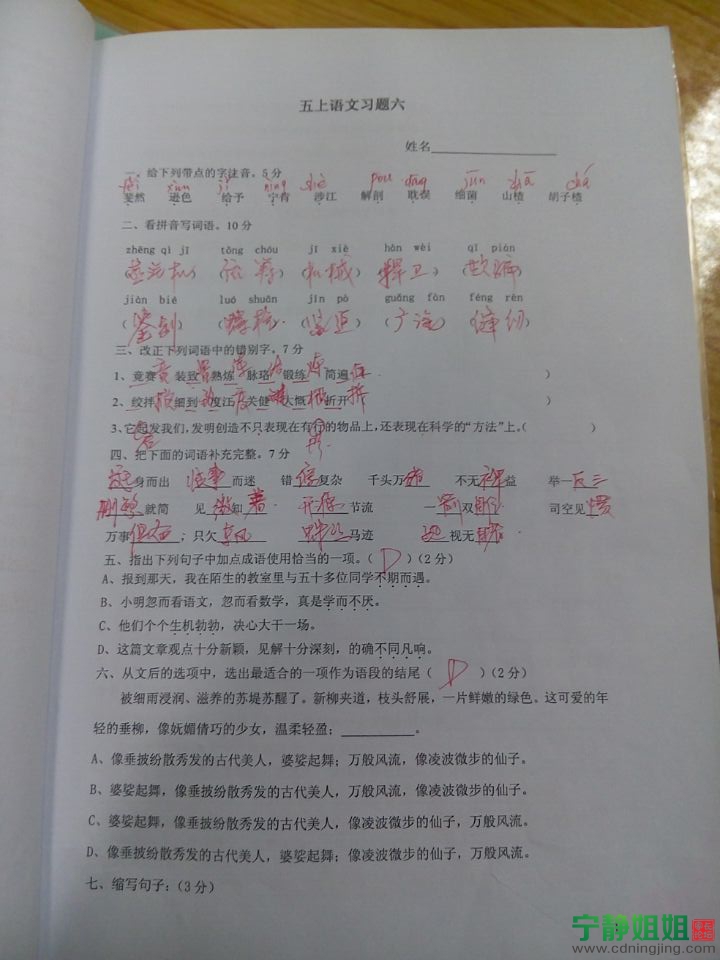 五上语文习题六
姓名
一、给下列带点的字注音。5分
fěi xùn jǐ nìng shè pōu dān jūn zhā chā
斐然 逊色 给予 宁肯 涉江 解剖 耽误 细菌 山楂 胡子楂
二、看拼音写词语。10分
zhēng qì jī tǒng chóu jī xiè hàn wèi qī piàn
(蒸汽机) (统筹) (机械) (捍卫) (欺骗)
jiàn bié luó shuān jǐn pò guǎng fàn féng rèn
(鉴别) (螺栓) (紧迫) (广泛) (缝纫)
三、改正下列词语中的错别字。7分
1、竟赛 装致 熟炼 脉珞 锻练 简遍 )
2、绞拌 细到 度江 关健 大慨 折开 )
3、它起发我们,发明创造不只表现在有行的物品上,还表现在科学的“方法”上。( )
四、把下面的词语补充完整。7分
身而出 而迷 错综复杂 千头万绪 不无裨益 举一反三
删繁就简 见微知著 开源节流 一箭双雕 司空见惯
万事俱备;只欠东风 蛛丝马迹 视无睹
五、指出下列句子中加点成语使用恰当的一项。( D )(2分)
A、报到那天,我在陌生的教室里与五十多位同学不期而遇。
B、小明忽而看语文,忽而看数学,真是学而不厌。
C、他们个个生机勃勃,决心大干一场。
D、这篇文章观点十分新颖,见解十分深刻,的确不同凡响。
六、从文后的选项中,选出最适合的一项作为语段的结尾( D )(2分)
被细雨浸润、滋养的苏堤苏醒了。新柳夹道,枝头舒展,一片鲜嫩的绿色。这可爱的年
轻的垂柳,像妩媚倩巧的少女,温柔轻盈;__________。
A、像垂披纷散秀发的古代美人,婆娑起舞;万般风流,像凌波微步的仙子。
B、婆娑起舞,像垂披纷散秀发的古代美人,万般风流,像凌波微步的仙子。
C、婆娑起舞,像垂披纷散秀发的古代美人;像凌波微步的仙子,万般风流。
D、像垂披纷散秀发的古代美人,婆娑起舞;像凌波微步的仙子,万般风流。
七、缩写句子:(3分)
宁静姐姐
www.cdningjing.com